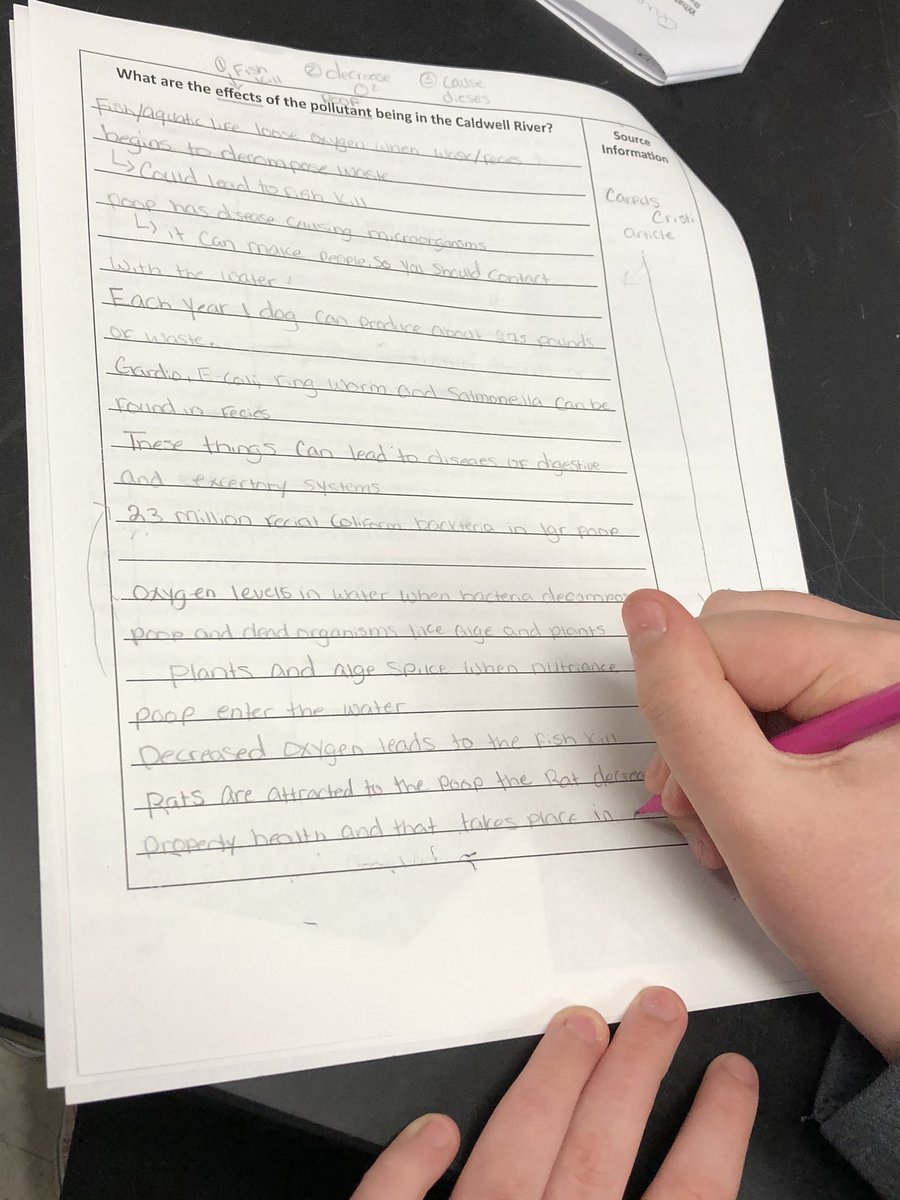 ① Fish Kill ② decrease O² ③ cause dieses
poop
What are the effects of the pollutant being in the Caldwell River?
Source Information
Fish/aquatic life loose oxygen when
begins to decompose waste
↳ Could lead to fish kill
poop has disease causing microorganisms
↳ it can make people, so you should contact
with the water
Each year 1 dog can produce about 275 pounds
of waste.
Giardia, E-coli, ring worm and Salmonella can be
found in fecies
These things can lead to diseaes of digestive
and excertory systems
23 million fecial coliform backteria in 1gr poop
Oxygen levels in water when bacteria decompo
poop and dead organisms like alge and plants
Plants and alge spice when nutriance
poop enter the water
Decreased oxygen leads to the fish kill
Rats are attracted to the poop the Rat decrea
property health and that takes place in
Corpus
Cristi
article